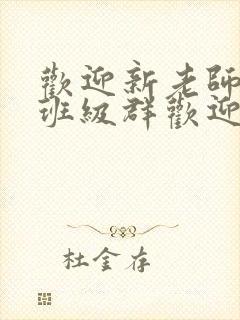 歡迎新老師
班級群歡迎
杜金存